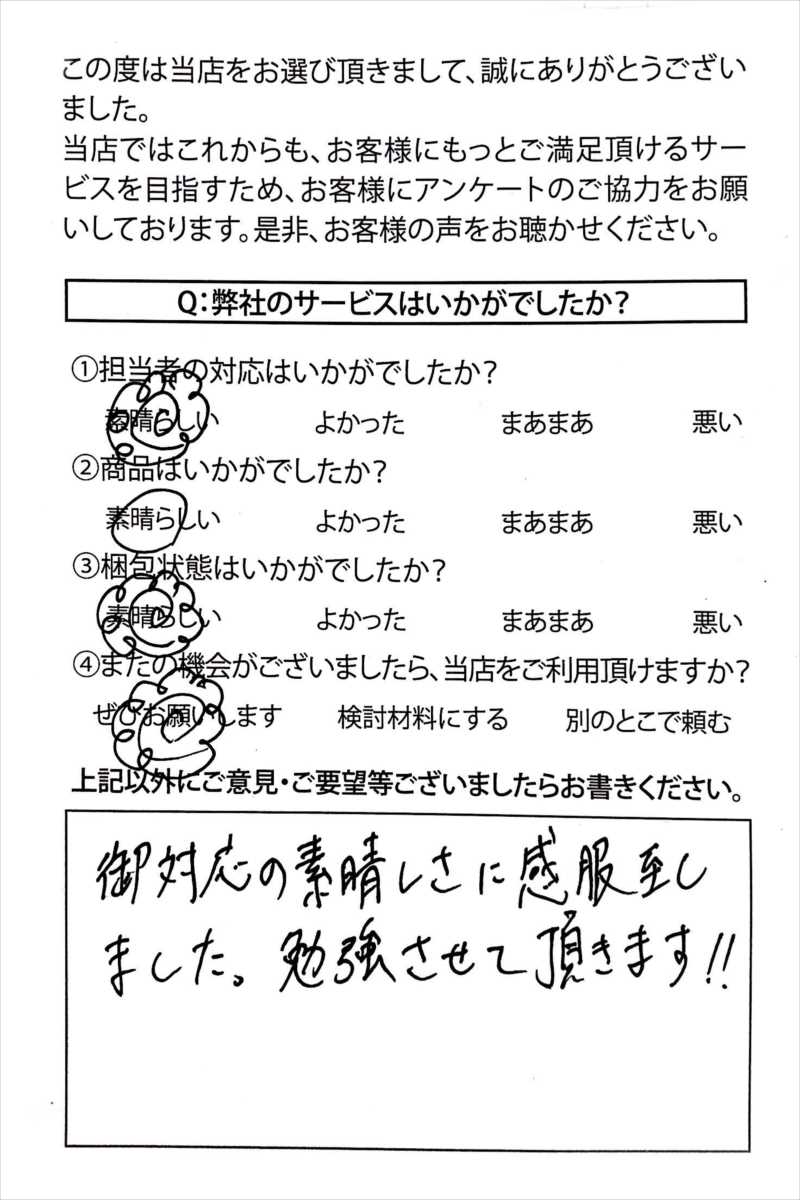 この度は当店をお選び頂きまして、誠にありがとうござい
ました。
当店ではこれからも、お客様にもっとご満足頂けるサー
ビスを目指すため、お客様にアンケートのご協力をお願
いしております。是非、お客様の声をお聴かせください。
Q:弊社のサービスはいかがでしたか?
①担当者の対応はいかがでしたか?
素晴らしい よかった まあまあ 悪い
②商品はいかがでしたか?
素晴らしい よかった まあまあ 悪い
③梱包状態はいかがでしたか?
素晴らしい よかった まあまあ 悪い
④またの機会がございましたら、当店をご利用頂けますか?
ぜひお願いします 検討材料にする 別のとこで頼む
上記以外にご意見・ご要望等ございましたらお書きください。
御対応の素晴しさに感服至し
ました。勉強させて頂きます!!